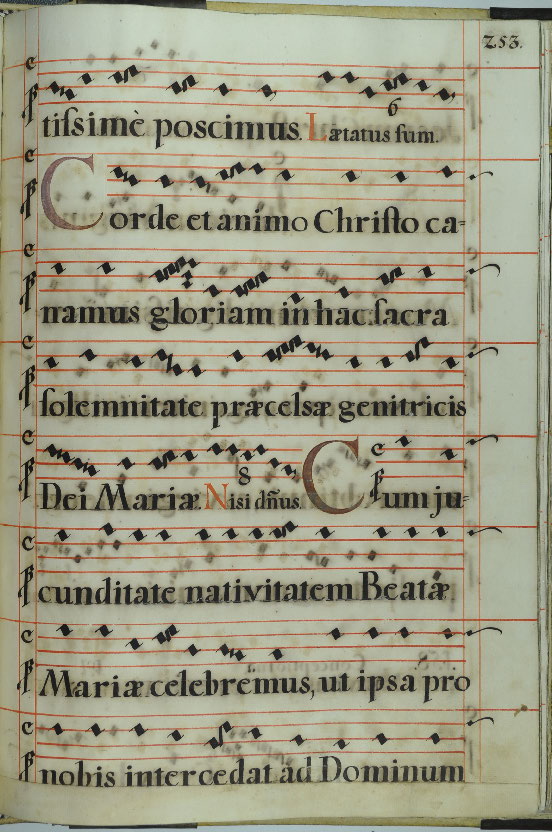 253.
tiſsimè poscimus. Lætatus ſum.
6
Corde et animo Chriſto ca-
namus gloriam in hac ſacra
ſolemnitate præcelsæ genitricis
8
Dei Mariæ. Nisi dñus. Cum ju-
cunditate nativitatem Beatæ
Mariæ celebremus, ut ipsa pro
nobis intercedat ad Dominum